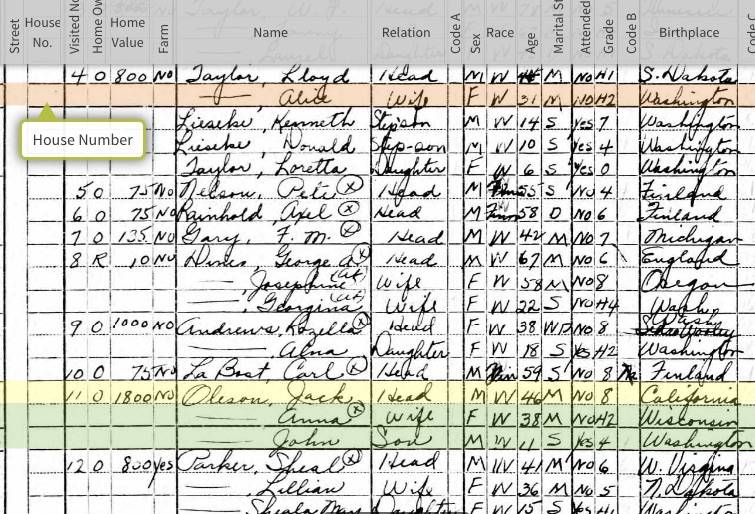 Street House No. Visited No Home Ow Home Value Farm Name Relation Code A Sex Race Age Marital St Attended Grade Code B Birthplace
4 0 800 No Taylor, Lloyd Head M W M No H1 S. Dakota
— , Alice Wife F W 31 M No H2 Washington
House Number
Lieseke, Kenneth Stepson M W 14 S Yes 7 Washington
Lieseke, Donald Step-son M W 10 S Yes 4 Washington
Taylor, Loretta Daughter F W 6 S Yes 0 Washington
5 0 75 No Nelson, Pete X Head M 55 S No 4 Finland
6 0 75 No Rainhold, Axel X Head M 58 D No 6 Finland
7 0 135 No Gary, F. M. X Head M W 42 M No 7 Michigan
8 R 10 No George X Head M W 67 M No 6 England
— , Josephine Wife F W 58 M No 8 Oregon
— , Georgina Wife F W 22 S No H4 Wash.
9 0 1000 No Andrews, Rozella X Head F W 38 WD No 8
— , Alna Daughter F W 18 S Yes H2 Washington
10 0 75 No La Bost, Carl X Head M 59 S No 8 Finland
11 0 1800 No Oleson, Jack Head M W 46 M No 8 California
— , Anna X Wife F W 38 M No H2 Wisconsin
— , John Son M W 11 S Yes 4 Washington
12 0 800 yes Parker, Sheal X Head M W 41 M No 6 W. Virginia
— , Lillian Wife F W 36 M No 5 N. Dakota
— , Sheala May Daughter F W 15 S Yes H1 Washington